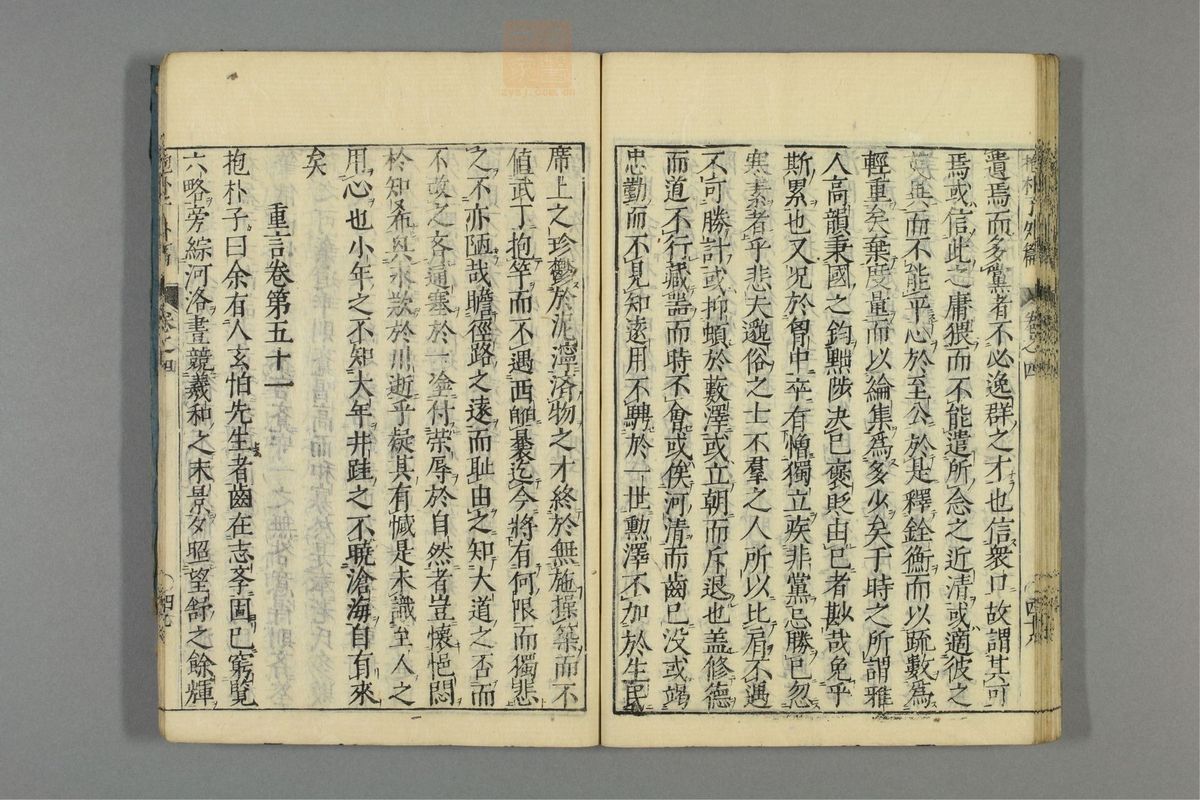 遺焉而多黨者不必逸群之才也信衆口故謂其可
焉或信此之庸猥而不能遣所念之近清或適彼之
英異而不能平心於至公於是釋銓衡而以疏數為
輕重矣棄度量而以綸集為多少矣于時之所謂雅
人高韻秉國之鈞黜陟决已褒貶由已者尠哉免乎
斯累也又况於胷中卒有憎獨立疾非黨忌勝已忽
寒素者乎悲夫邈俗之士不羣之人所以比肩不遇
不可勝計或抑頓於藪澤或立朝而斥退也盖修德
而道不行藏器而時不會或俟河清而齒已没或竭
忠勤而不見知遠用不騁於一世勲澤不加於生民
席上之珍鬱於泥濘済物之才終於無施操築而不
值武丁抱竿而不遇西伯曩迄今將有何限而獨悲
之不亦陋哉瞻徑路之遠而耻由之知大道之否而
不改之吝通塞於一塗付荣辱於自然者豈懐悒悶
於知希興永歎於川逝乎疑其有憾是未識至人之
用心也小年之不知大年井蛙之不曉滄海自有來
矣
重言卷第五十一
抱朴子曰余有人玄怕先生者齒在志斈固已窮覧
六略旁綜河洛晝競羲和之末景夕照望舒之餘輝